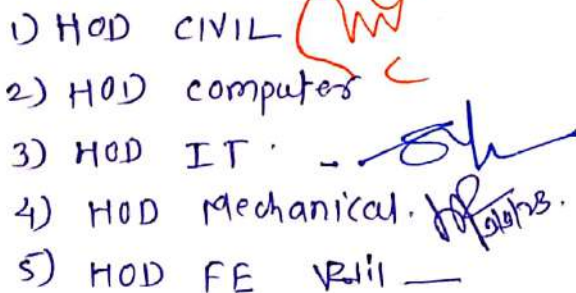 1) HOD CIVIL
2) HOD computer
3) HOD IT.
4) HOD Mechanical.
5) HOD FE